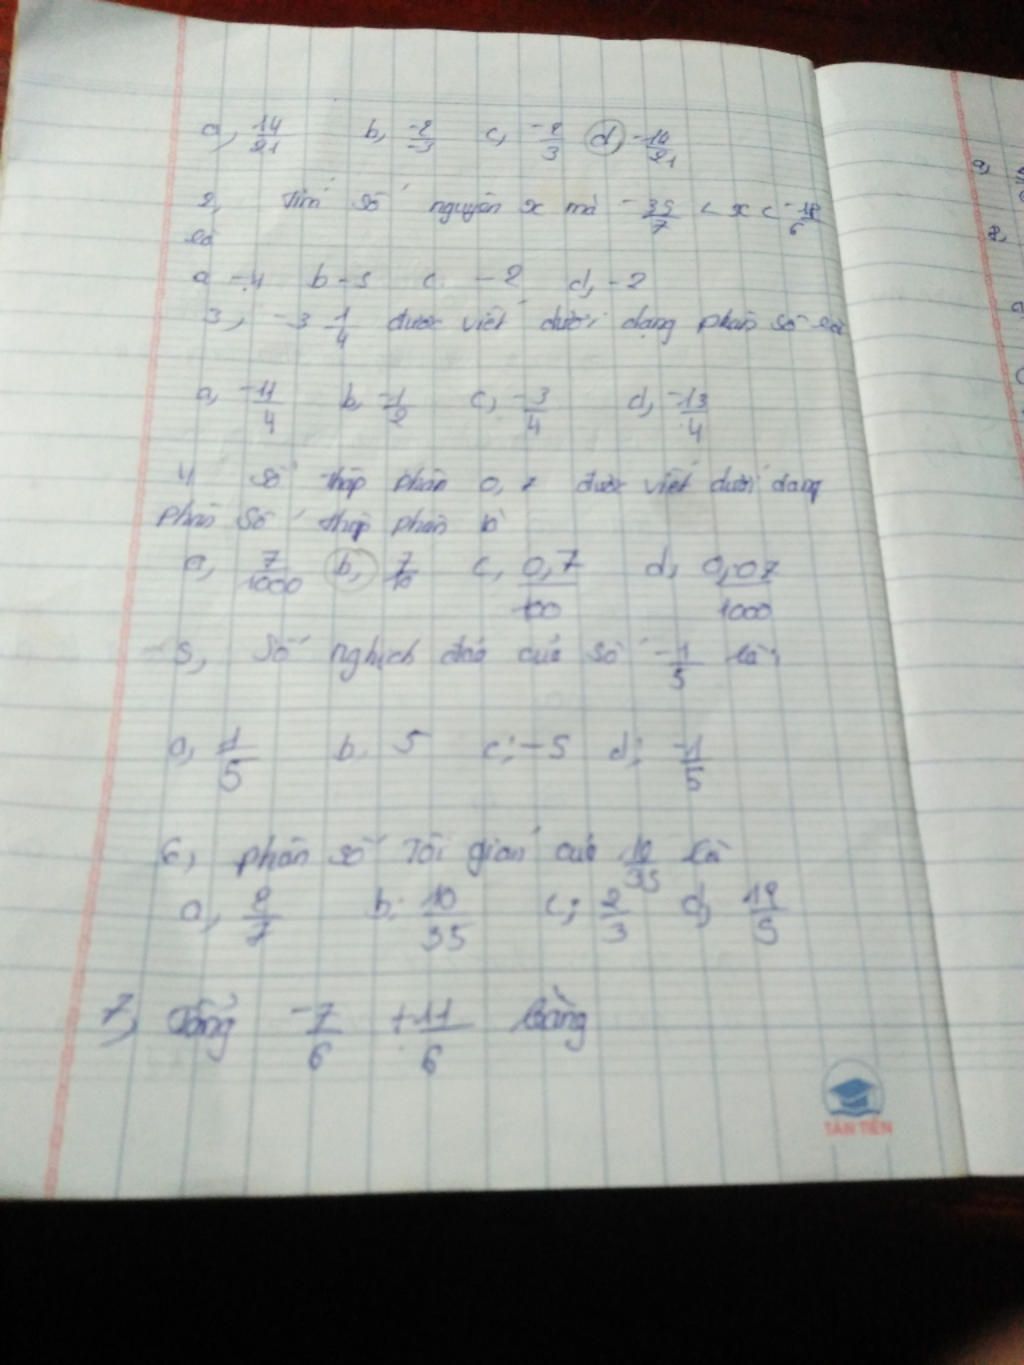 a, 14/21 b, -2/-3 c, -2/3 d, -14/21
2, Tìm số nguyên x mà -35/7 < x < -18/6
là
a -4 b -5 c. -2 d, -2
3, -3 1/4 được viết dưới dạng phân số là
a, -11/4 b, -1/2 c, -3/4 d, -13/4
4 Số thập phân 0,7 được viết dưới dạng
phân số thập phân là
a, 7/1000 b, 7/10 c, 0,7/100 d, 0,07/1000
5, Số nghịch đảo của số -1/5 là:
a, 1/5 b. 5 c; -5 d; -1/5
6, phân số Tối giản của 10/35 là
a, 2/7 b. 10/35 c; 2/3 d, 12/5
7, Tổng -7/6 + 11/6 bằng
TÂN TIẾN